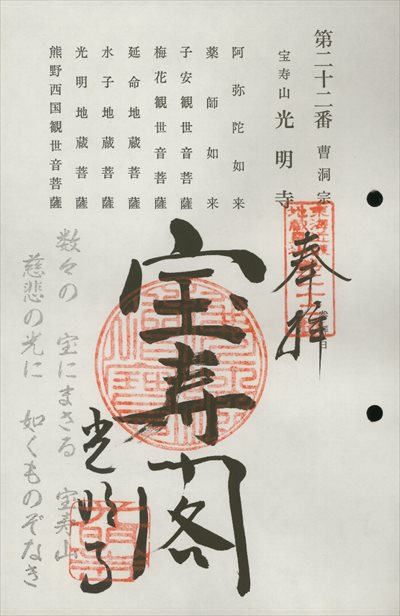 第二十二番 曹洞宗
宝寿山 光明寺
阿弥陀如来
薬師如来
子安観世音菩薩
梅花観世音菩薩
延命地蔵菩薩
水子地蔵菩薩
光明地蔵菩薩
熊野西国観世音菩薩
奉拝
宝寿閣
光明寺
数々の 宝にまさる 宝寿山
慈悲の光に 如くものぞなき